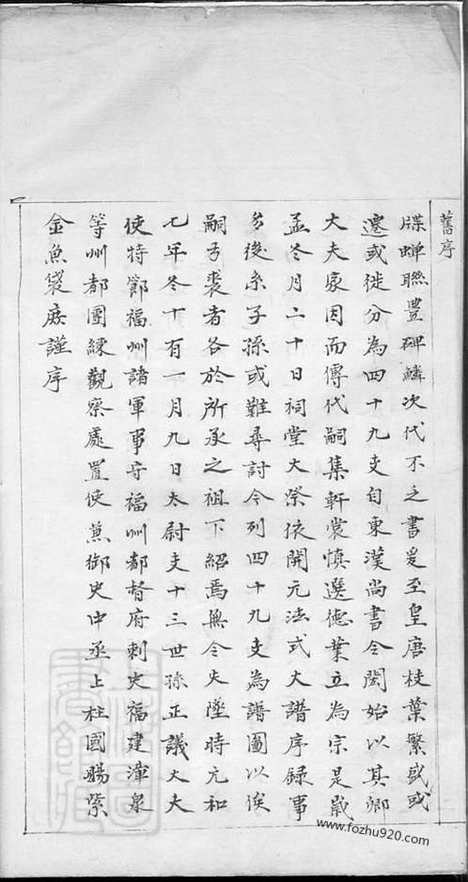 舊序
牒蟬聯豊碑鱗次代不乏書爰至皇唐枝葉繁盛或
遷或徙分為四十九支自東漢尚書令閎始以其鄉
大夫家因而傳代嗣集軒裳慎選德業立為宗是歲
孟冬月二十日祠堂大祭依開元法式大譜序録事
多後糸子孫或難尋討今列四十九支為譜圖以俟
嗣芳裘者各於所承之祖下紹焉無令失墜時元和
七年冬十有一月九日太尉支十三世孫正議大夫
使特節福州諸軍事守福州都督府刺史福建漳泉
等州都團練觀察處置使蒹御史中丞上柱國賜紫
金魚袋庾謹序
www.fozhu920.com